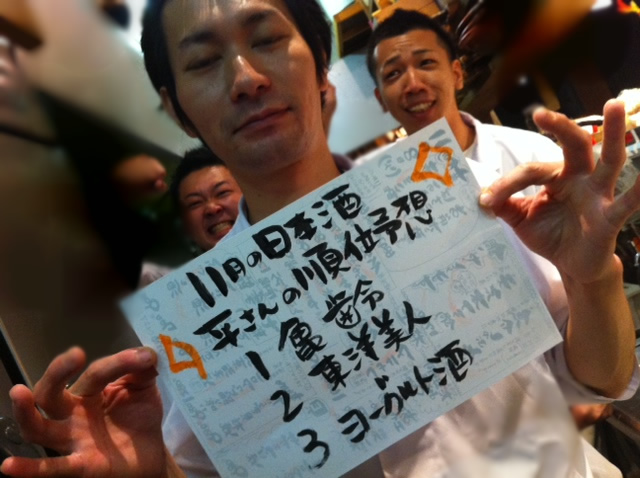 11月の日本酒
平さんの順位予想
1 亀齢
2 東洋美人
3 ヨーグルト酒